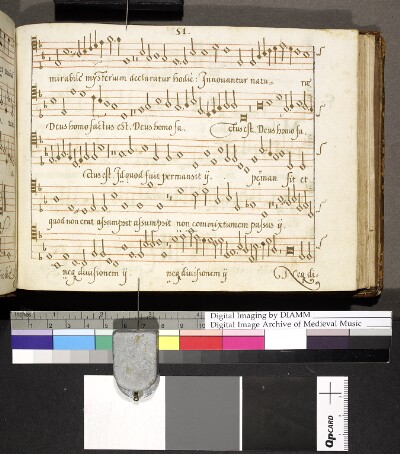 51.
mirabile mysterium declaratur hodie: Innovantur natu. re
Deus homo factus est. Deus homo fa. Ctus est. Deus homo fa.
Ctus est. Id quod fuit permansit ij. perman sit et
quod non erat assumpsit assumpsit non comonixtionem passus ij
neq divisionem ij neq divisionem ij Neq di
Digital Imaging by DIAMM
Digital Image Archive of Medieval Music
QPCARD